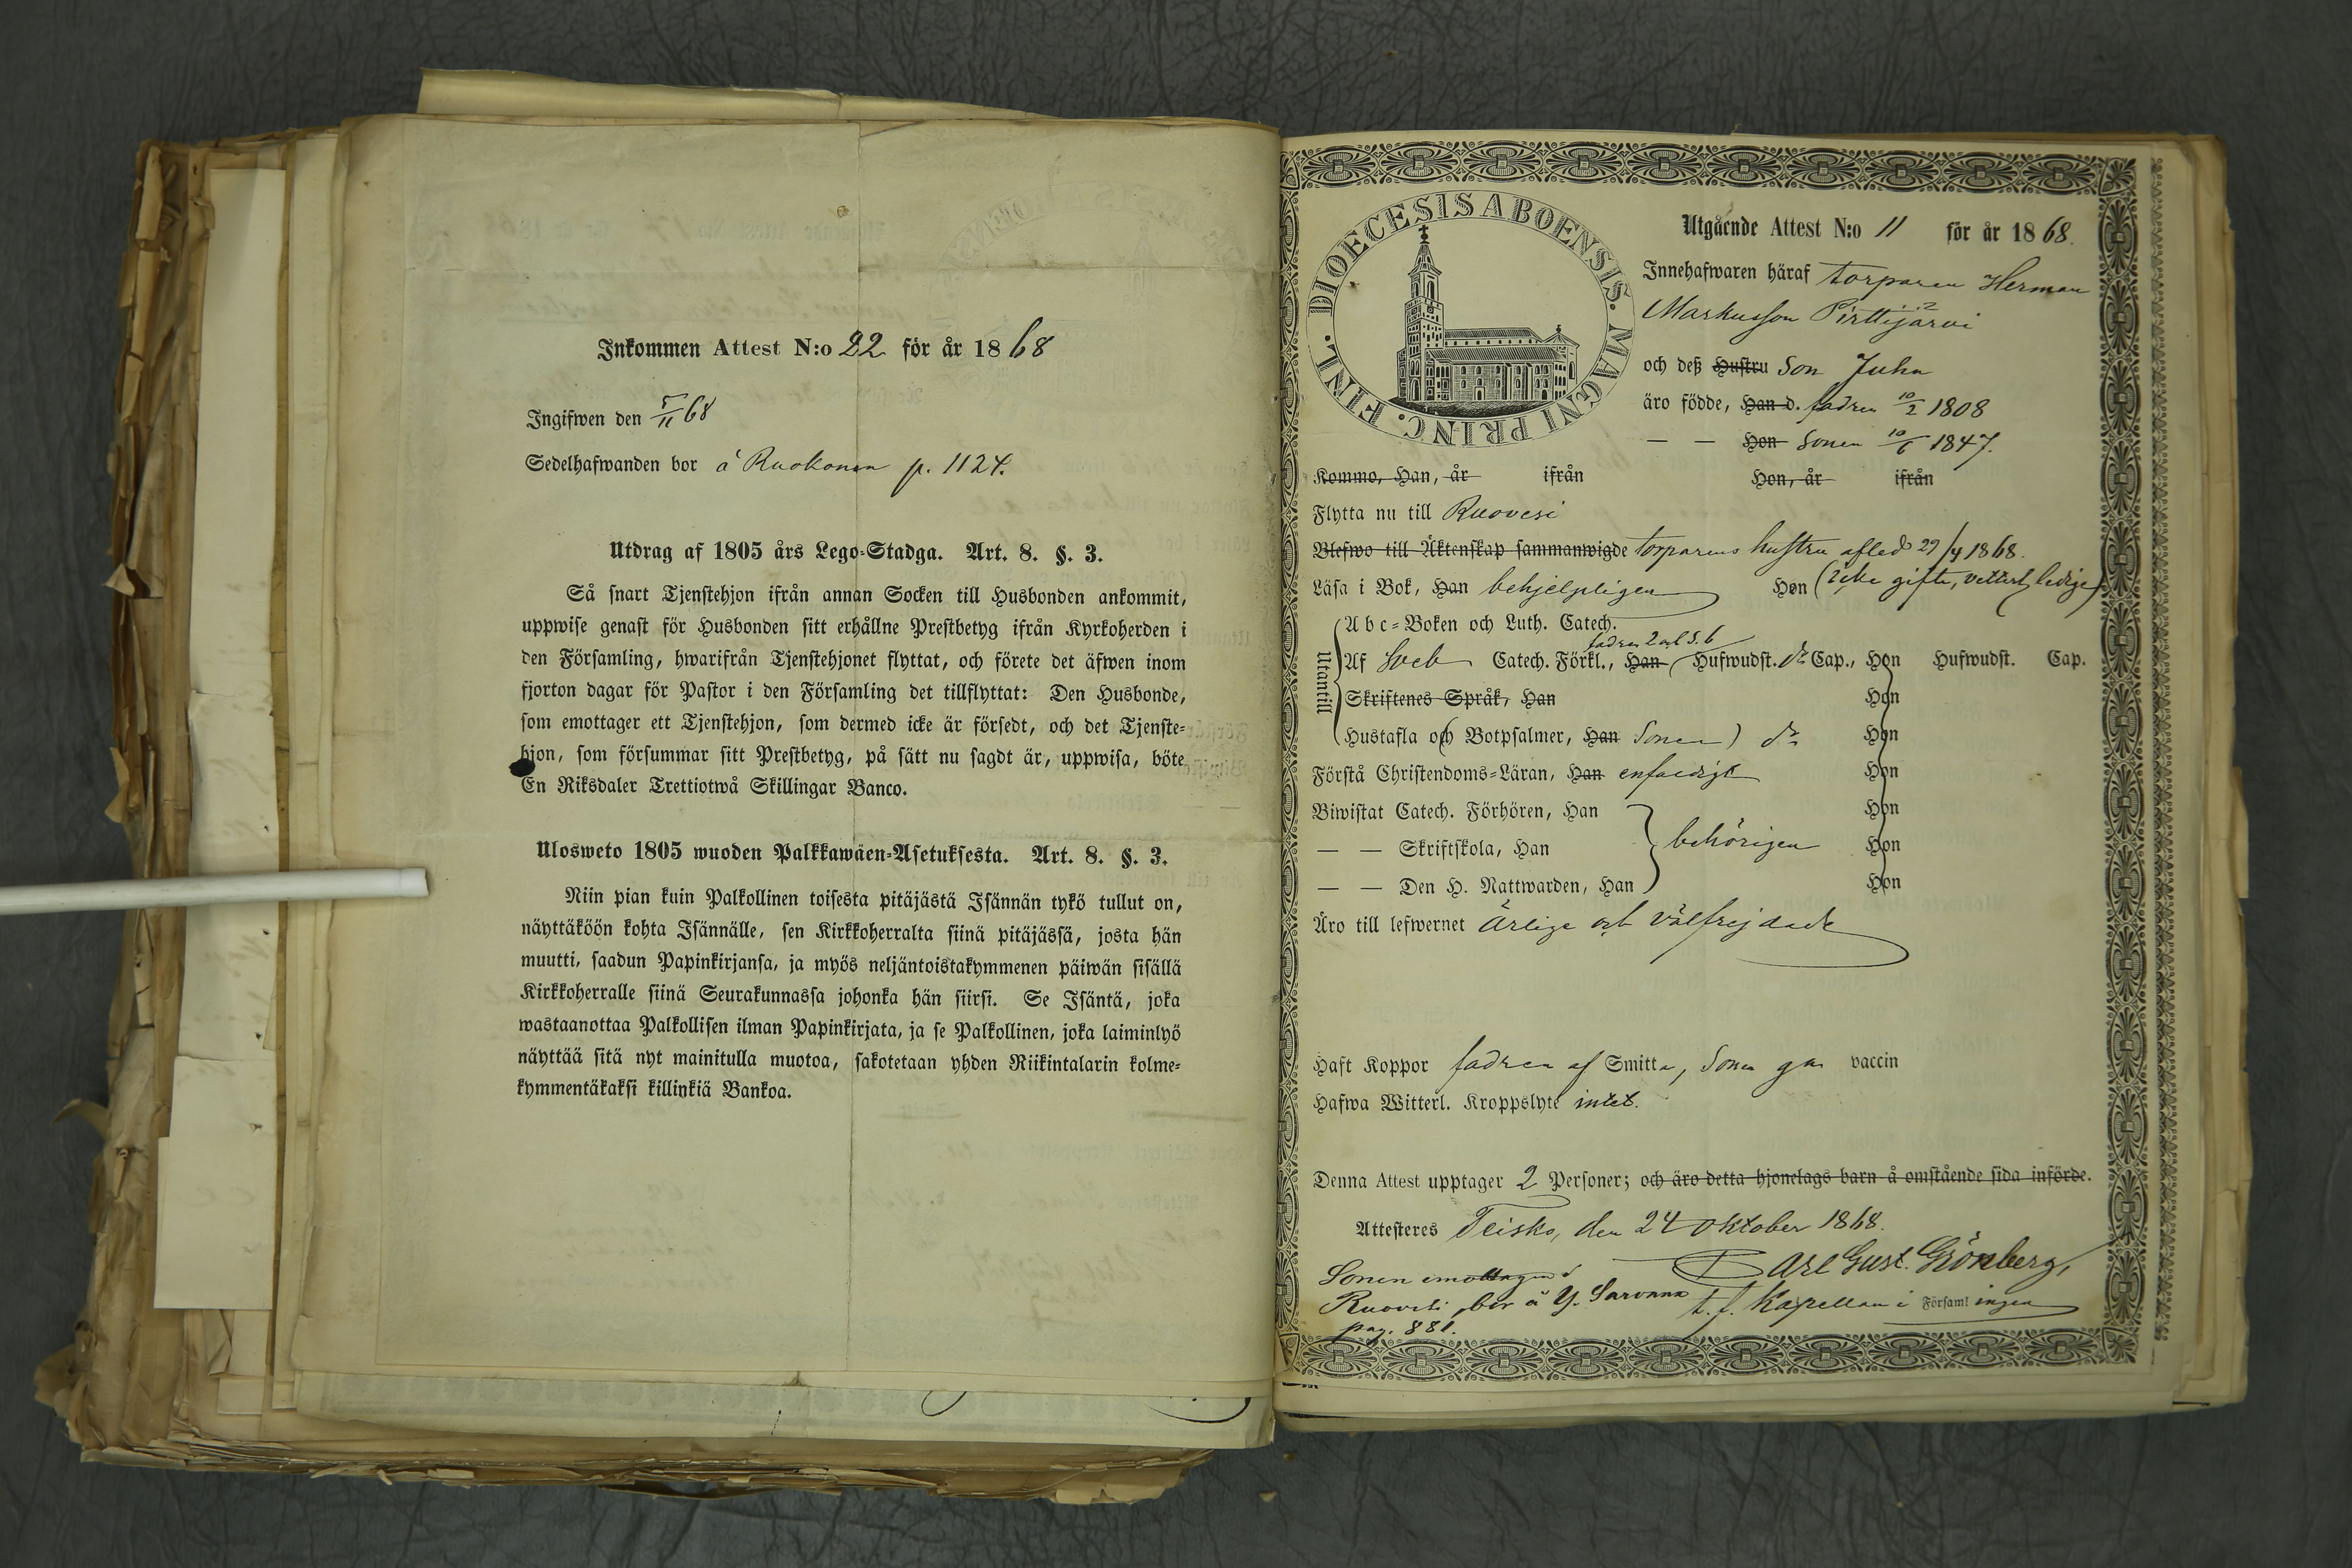 Inkommen Attest N:o 22 för år 1868
Ingifwen den 5/11 68
Sedelhafwanden bor å Ruokonen p. 1124.
Utdrag af 1805 års Lego-Stadga. Art. 8. §. 3.
Så snart Tjenstehjon ifrån annan Socken till Husbonden ankommit,
uppwise genast för Husbonden sitt erhållne Prestbetyg ifrån Kyrkoherden i
den Församling, hwarifrån Tjenstehjonet flyttat, och förete det äfwen inom
fjorton dagar för Pastor i den Församling det tillflyttat: Den Husbonde,
som emottager ett Tjenstehjon, som dermed icke är försedt, och det Tjenste-
hjon, som försummar sitt Prestbetyg, på sätt nu sagdt är, uppwisa, böte
En Riksdaler Trettiotwå Skillingar Banco.
Ulosweto 1805 wuoden Palkkawäen-Asetuksesta. Art. 8. §. 3.
Niin pian kuin Palkollinen toisesta pitäjästä Isännän tykö tullut on,
näyttäköön kohta Isännälle, sen Kirkkoherralta siinä pitäjässä, josta hän
muutti, saadun Papinkirjansa, ja myös neljäntoistakymmenen päiwän sisällä
Kirkkoherralle siinä Seurakunnassa johonka hän siirsi. Se Isäntä, joka
wastaanottaa Palkollisen ilman Papinkirjata, ja se Palkollinen, joka laiminlyö
näyttää sitä nyt mainitulla muotoa, sakotetaan yhden Riikintalarin kolme-
kymmentäkaksi killinkiä Bankoa.
DIOECESIS ABOENSIS. MAGNI PRINC. FINL.
Utgående Attest N:o 11 för år 1868.
Innehafwaren häraf torparen Herman
Markusson Pirttijärvi
och deß Hustru Son Juha
äro födde, Han d. fadren 10/2 1808
— — Hon Sonen 10/6 1847.
Kommo, Han, år ifrån Hon, år ifrån
Flytta nu till Ruovesi
Blefwo till Äktenskap sammanwigde torparens hustru afled 29/4 1868.
Läsa i Bok, Han behjelpligen Hon (icke gifte, vetterl. ledige)
Utantill
A b c-Boken och Luth. Catech.
fadren 2 och 5. 6
Af Sveb Catech. Förkl., Han Hufwudst. Cap., Hon Hufwudst. Cap.
Skriftenes Språk, Han Hon
Hustafla och Botpsalmer, Han Sonen) Hon
Förstå Christendoms-Läran, Han enfaldigt Hon
Biwistat Catech. Förhören, Han Hon
— — Skriftskola, Han behörigen Hon
— — Den H. Nattwarden, Han Hon
Äro till lefwernet ärlige och välfrejdade
Haft Koppor fadren af Smitta, Sonen gm vaccin
Hafwa Witterl. Kroppslyte intet.
Denna Attest upptager 2 Personer; och äro detta hjonelags barn å omstående sida införde.
Attesteras Teisko, den 24 Oktober 1868.
Carl Gust. Grönberg,
t. f. Kapellan i Församlingen
Sonen emottagen i
Ruovesi, bor å Y. Sarvana
pag. 881.